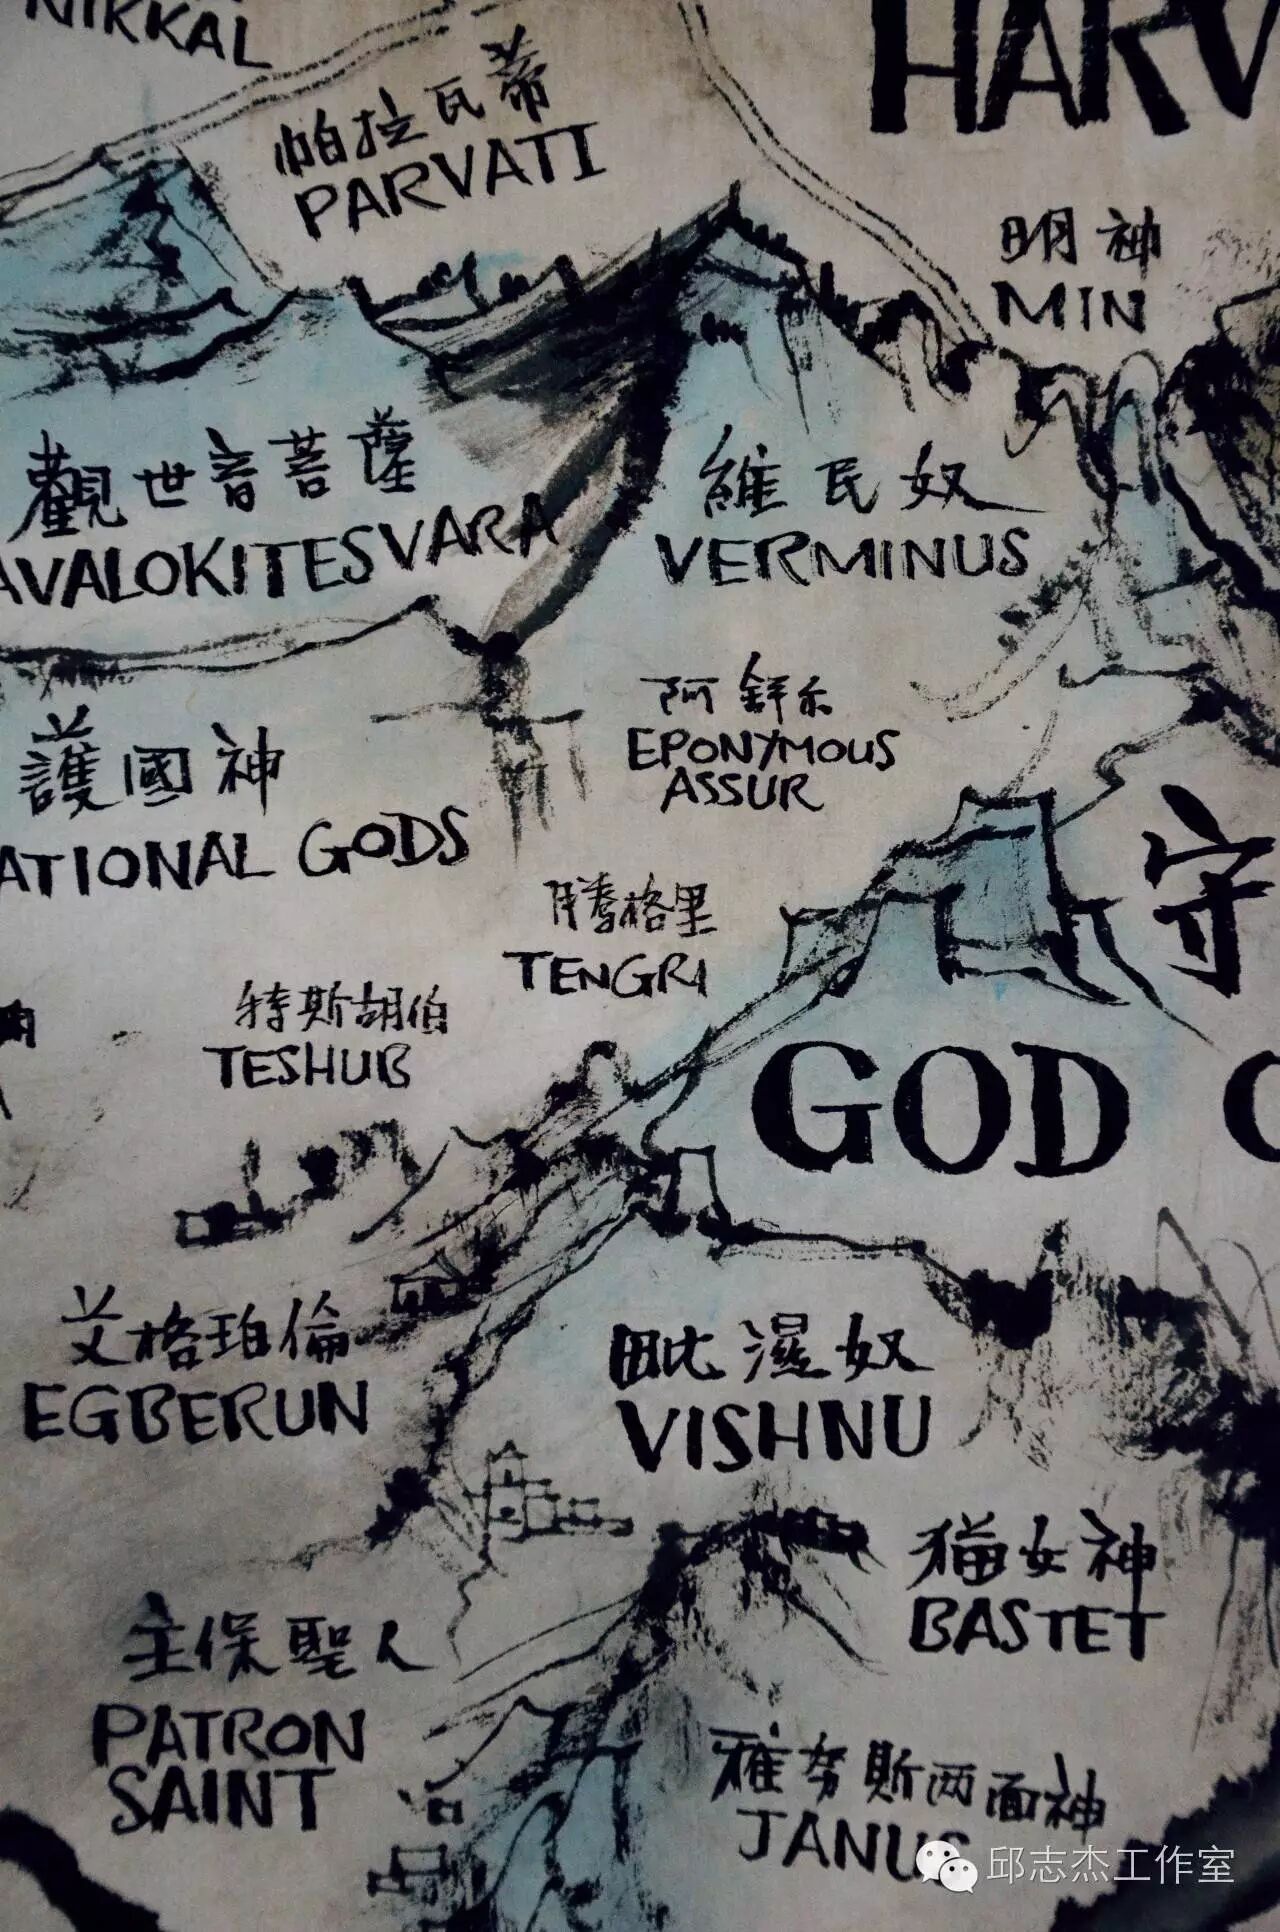 NIKKAL
HARV
帕拉瓦蒂
PARVATI
明神
MIN
觀世音菩薩
AVALOKITESVARA
維民奴
VERMINUS
阿舒尔
EPONYMOUS
ASSUR
護國神
ATIONAL GODS
守
騰格里
TENGRI
特斯胡伯
TESHUB
GOD
艾格珀倫
EGBERUN
毗濕奴
VISHNU
猫女神
BASTET
主保聖人
PATRON
SAINT
雅努斯两面神
JANUS
邱志杰工作室